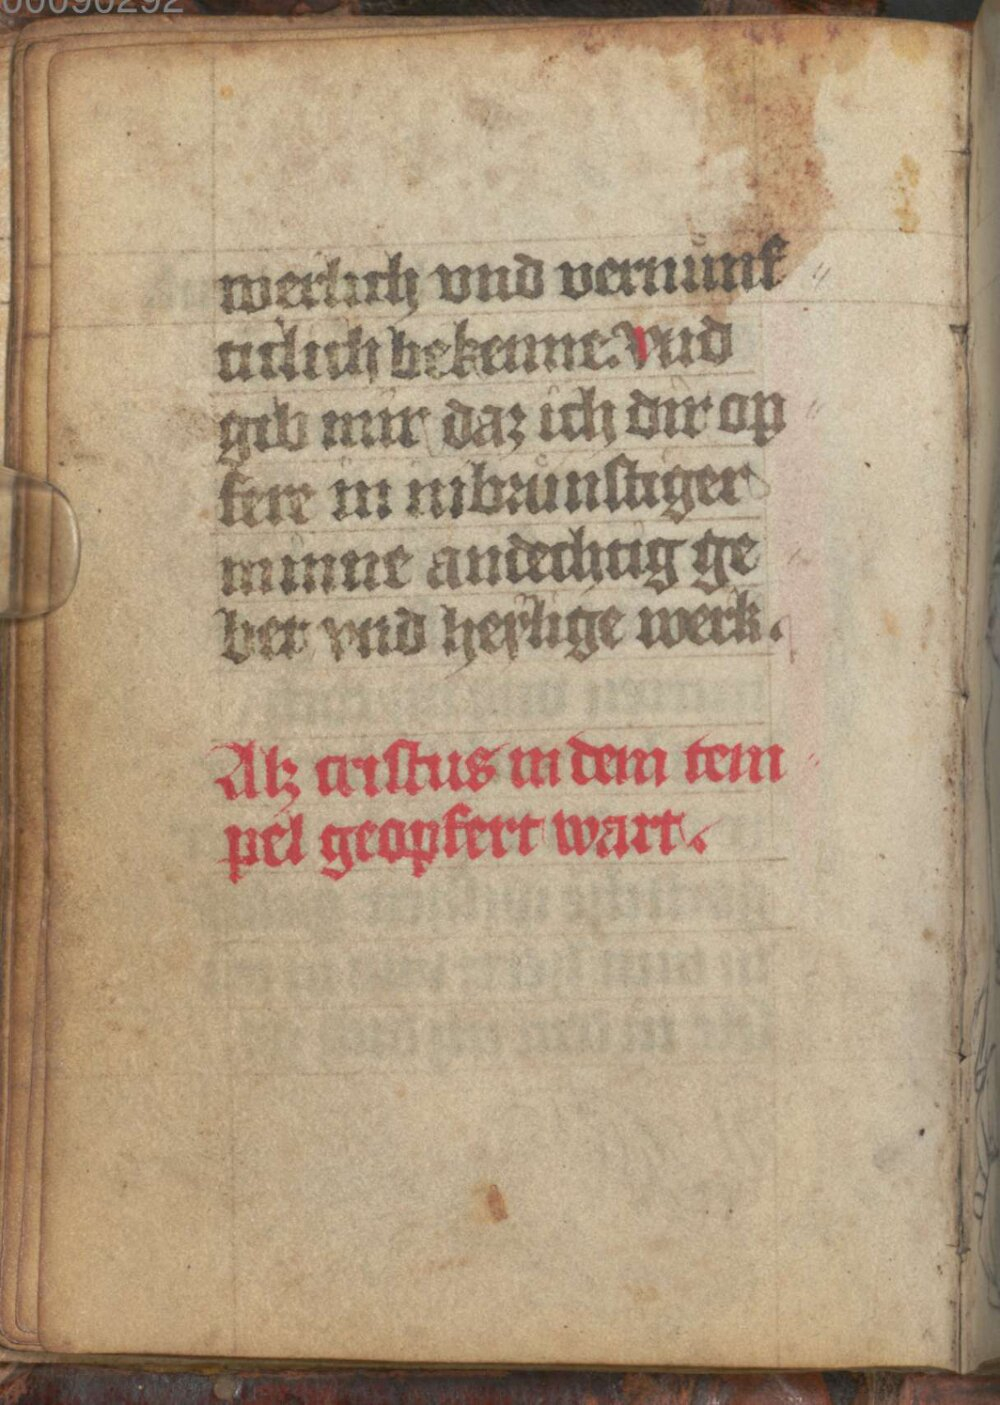 00090292
werlich vnd vernunf
tiklich bekenne. Vnd
gib mir daz ich dir op
fere in inbrunstiger
minne andechtig ge
bet vnd heylige werk.
Alz cristus in dem tem
pel geopfert wart.